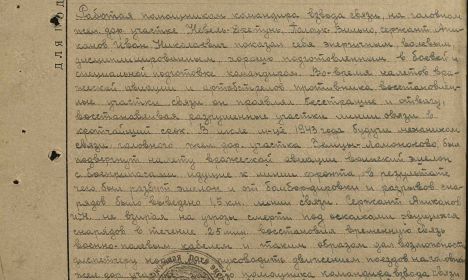 ДЛЯ ПОД
Работая помощником командира взвода связи, на головном
жел. дор. участке Невель-Дретунь, Полоцк-Вильно, сержант Ани-
канов Иван Николаевич показал себя энергичным, волевым
дисциплинированным, хорошо подготовленным в боевой и
специальной подготовке командиром. Во-время налетов вра-
жеской авиации и артобстрелов противника восстановлен-
ные участки связи он проявлял бесстрашие и отвагу,
восстанавливая разрушенные участки линии связи в
кратчайший срок. В июле м-це 1943 года будучи механиком
связи головного жел. дор. участка был
подвергнут налету вражеской авиации воинский эшелон
с боеприпасами идущие к линии фронта, в результате
чего был разбит эшелон и от бомбардировки и разрывов сна-
рядов было выведено 1,5 км. линии связи. Сержант Аниканов
И.Н. не взирая на угрозы смерти под осколками рвущихся
снарядов в течение 25 мин. восстановил временную связь
военно-полевым кабелем и таким образом дал возможность
диспетчеру руководить движением поездов на головном
жел. дор. участке помощника командира взвода связи